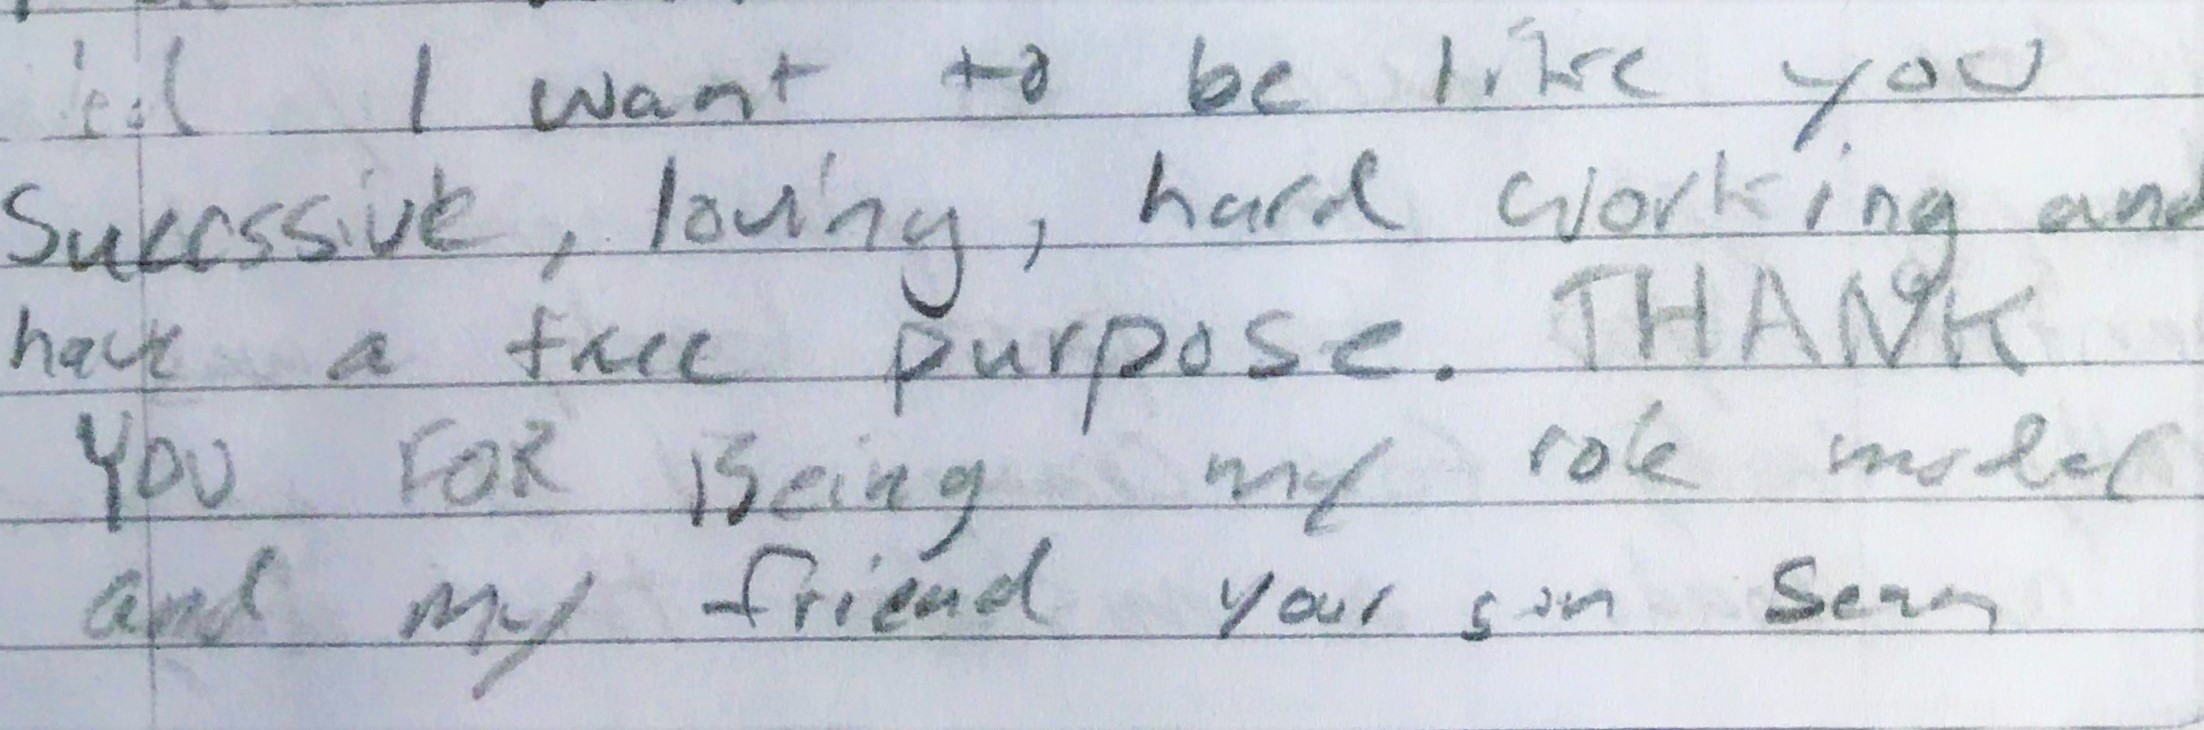 I want to be like you
Sucessive, loving, hard working and
have a free purpose. THANK
YOU FOR Being my role model
and my friend your son Sean